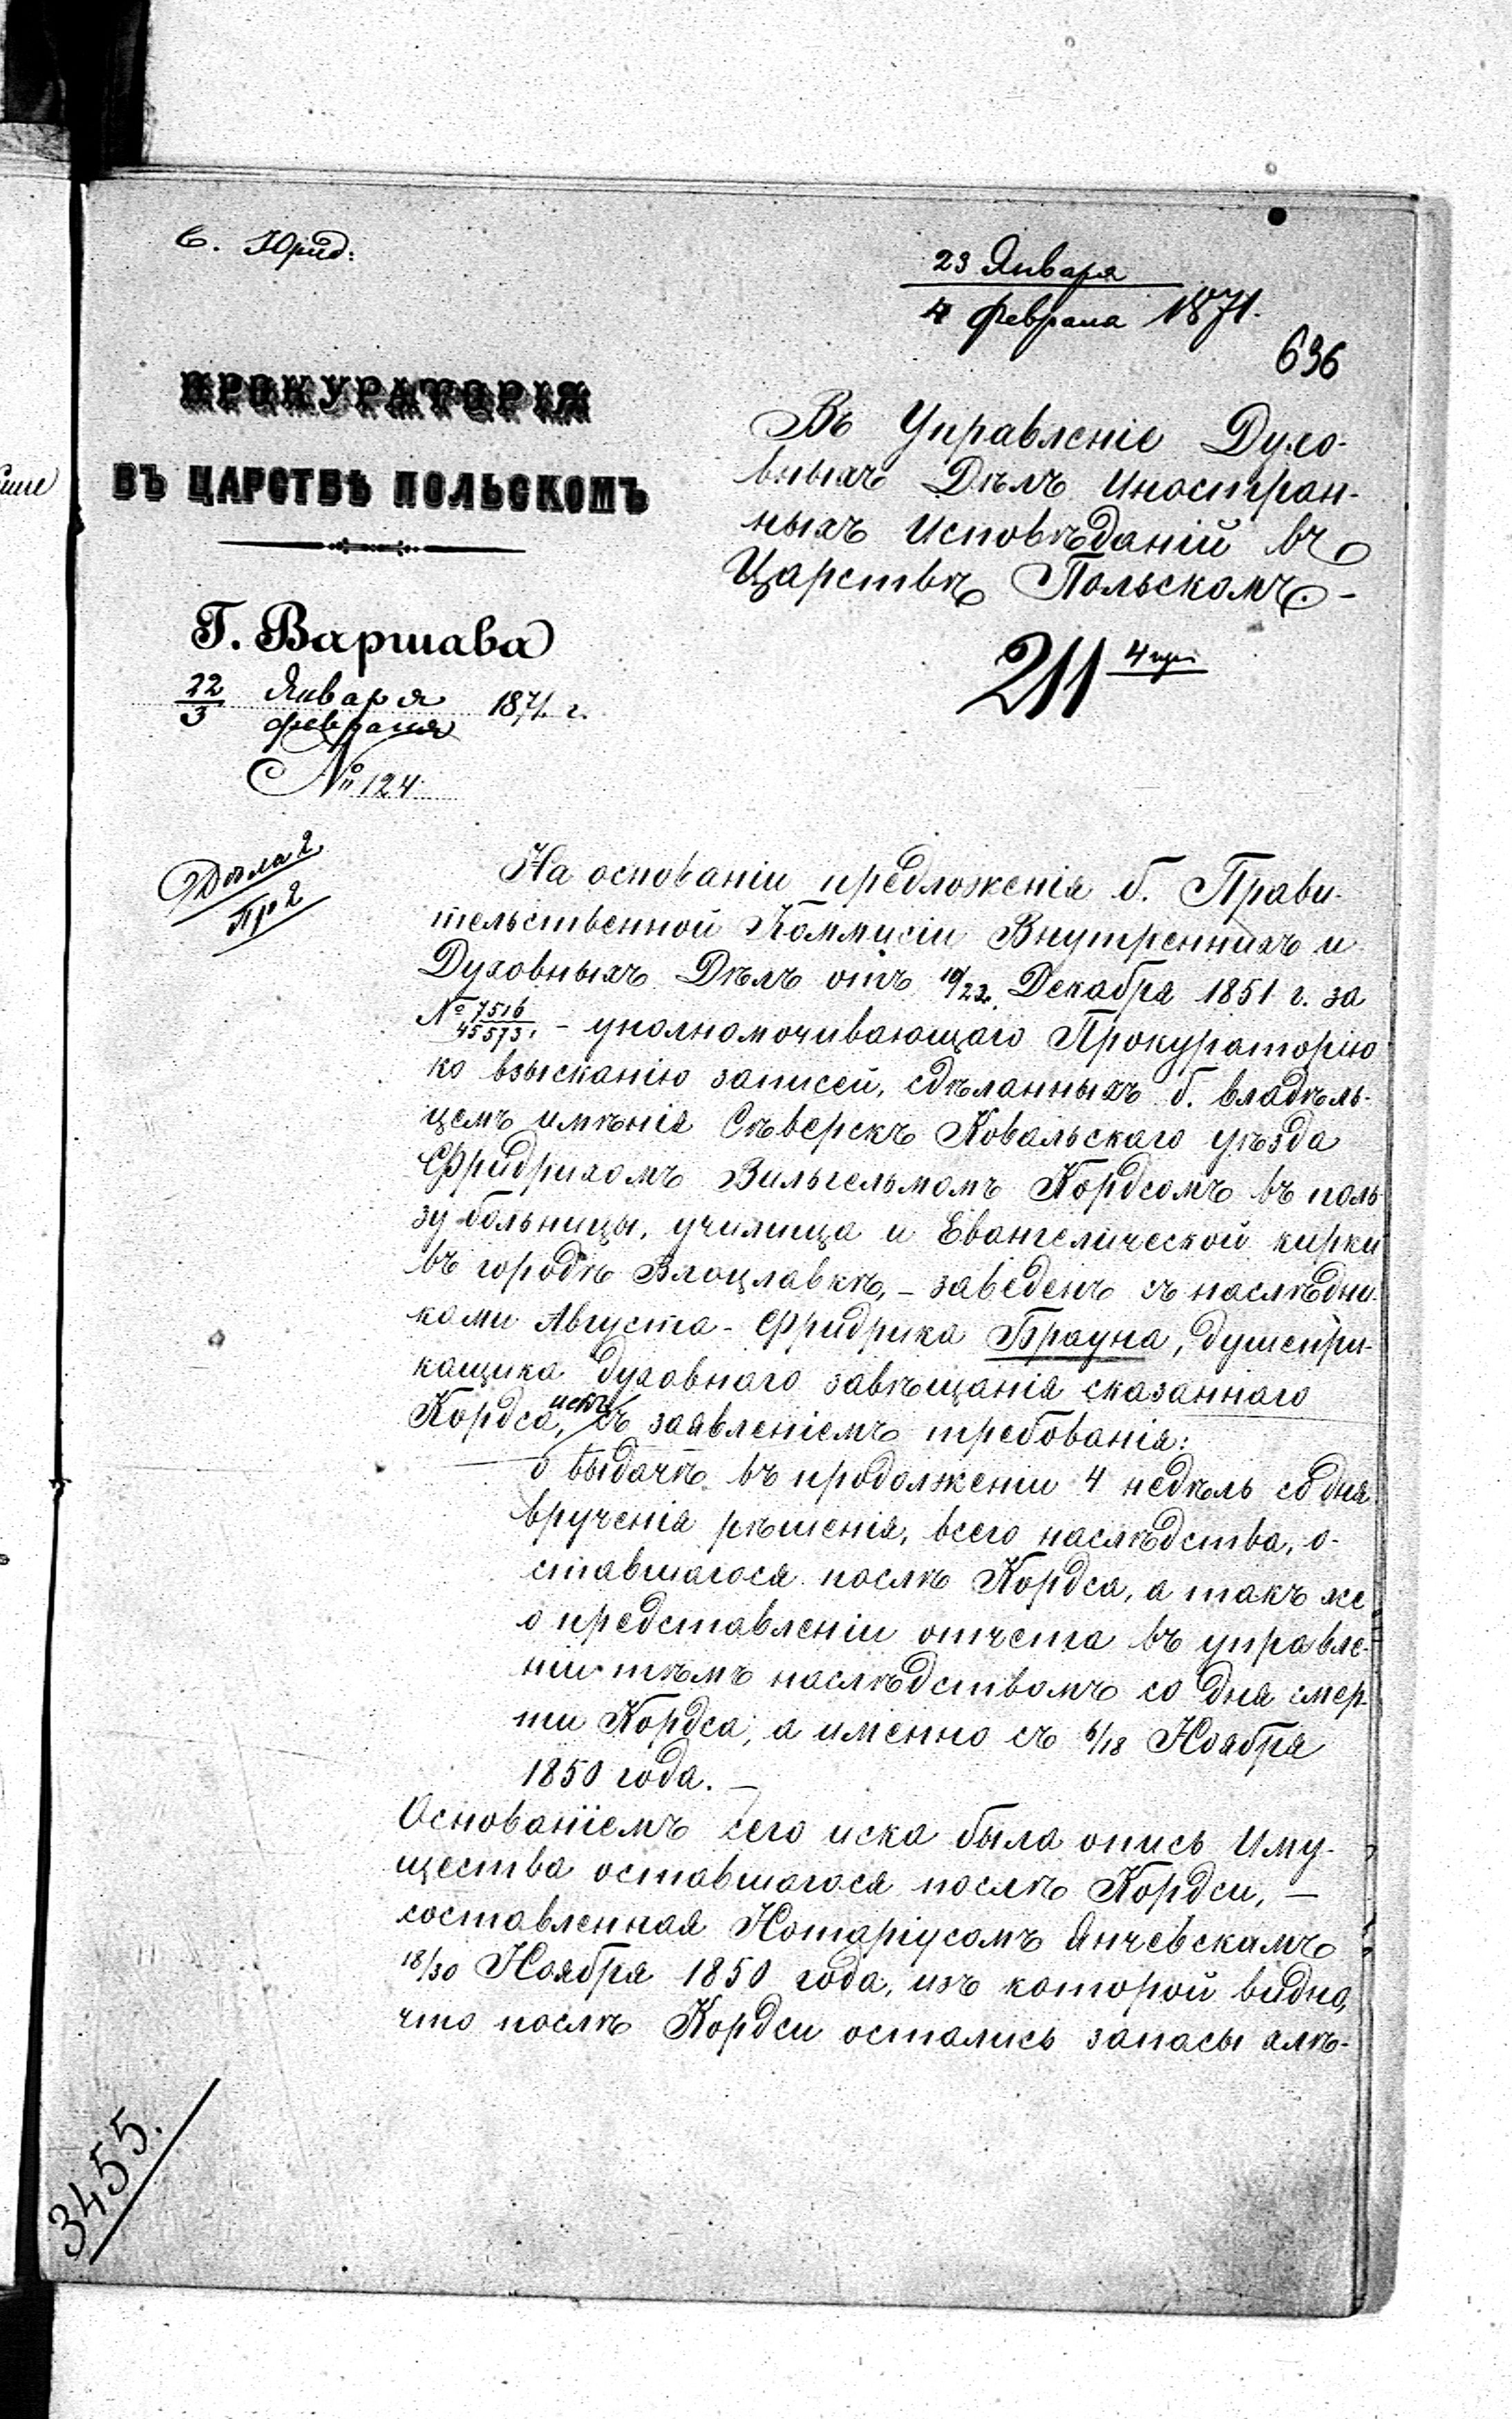 С. Юрид:
23 Января
4 Февраля 1871.
636
ПРОКУРАТОРІЯ
ВЪ ЦАРСТВѢ ПОЛЬСКОМЪ
Г. Варшава
22 Января
3 Февраля 1871 г.
№ 124
Въ Управленіе Духо-
вныхъ Дѣлъ Иностран-
ныхъ Исповѣданій въ
Царствѣ Польскомъ. -
211
На основаніи предложенія б. Прави-
тельственной Коммисіи Внутреннихъ и
Духовныхъ Дѣлъ отъ 10/22 Декабря 1851 г. за
№ 7516/45573, - уполномочивающаго Прокураторію
ко взысканію записей, сдѣланныхъ б. владѣль-
цемъ имѣнія Сѣверскъ Ковальскаго уѣзда
Фридрихомъ Вильгельмомъ Кордсомъ въ поль-
зу больницы, училища и Евангелической кирки
въ городѣ Влоцлавкѣ, - заведенъ съ наслѣдни-
ками Августа-Фридрика Брауна, душепри-
кащика духовнаго завѣщанія сказаннаго
Кордса, искъ съ заявленіемъ требованія:
о выдачѣ въ продолженіи 4 недѣль со дня
врученія рѣшенія, всего наслѣдства, о-
ставшагося послѣ Кордса, а такъ же
о представленіи отчета въ управле-
ніи тѣмъ наслѣдствомъ со дня смер-
ти Кордса, а именно съ 6/18 Ноября
1850 года. -
Основаніемъ сего иска была опись иму-
щества оставшагося послѣ Кордси, -
составленная Нотаріусомъ Янчевскамъ
18/30 Ноября 1850 года, изъ которой видно,
что послѣ Кордси остались запасы алѣ-
3455.